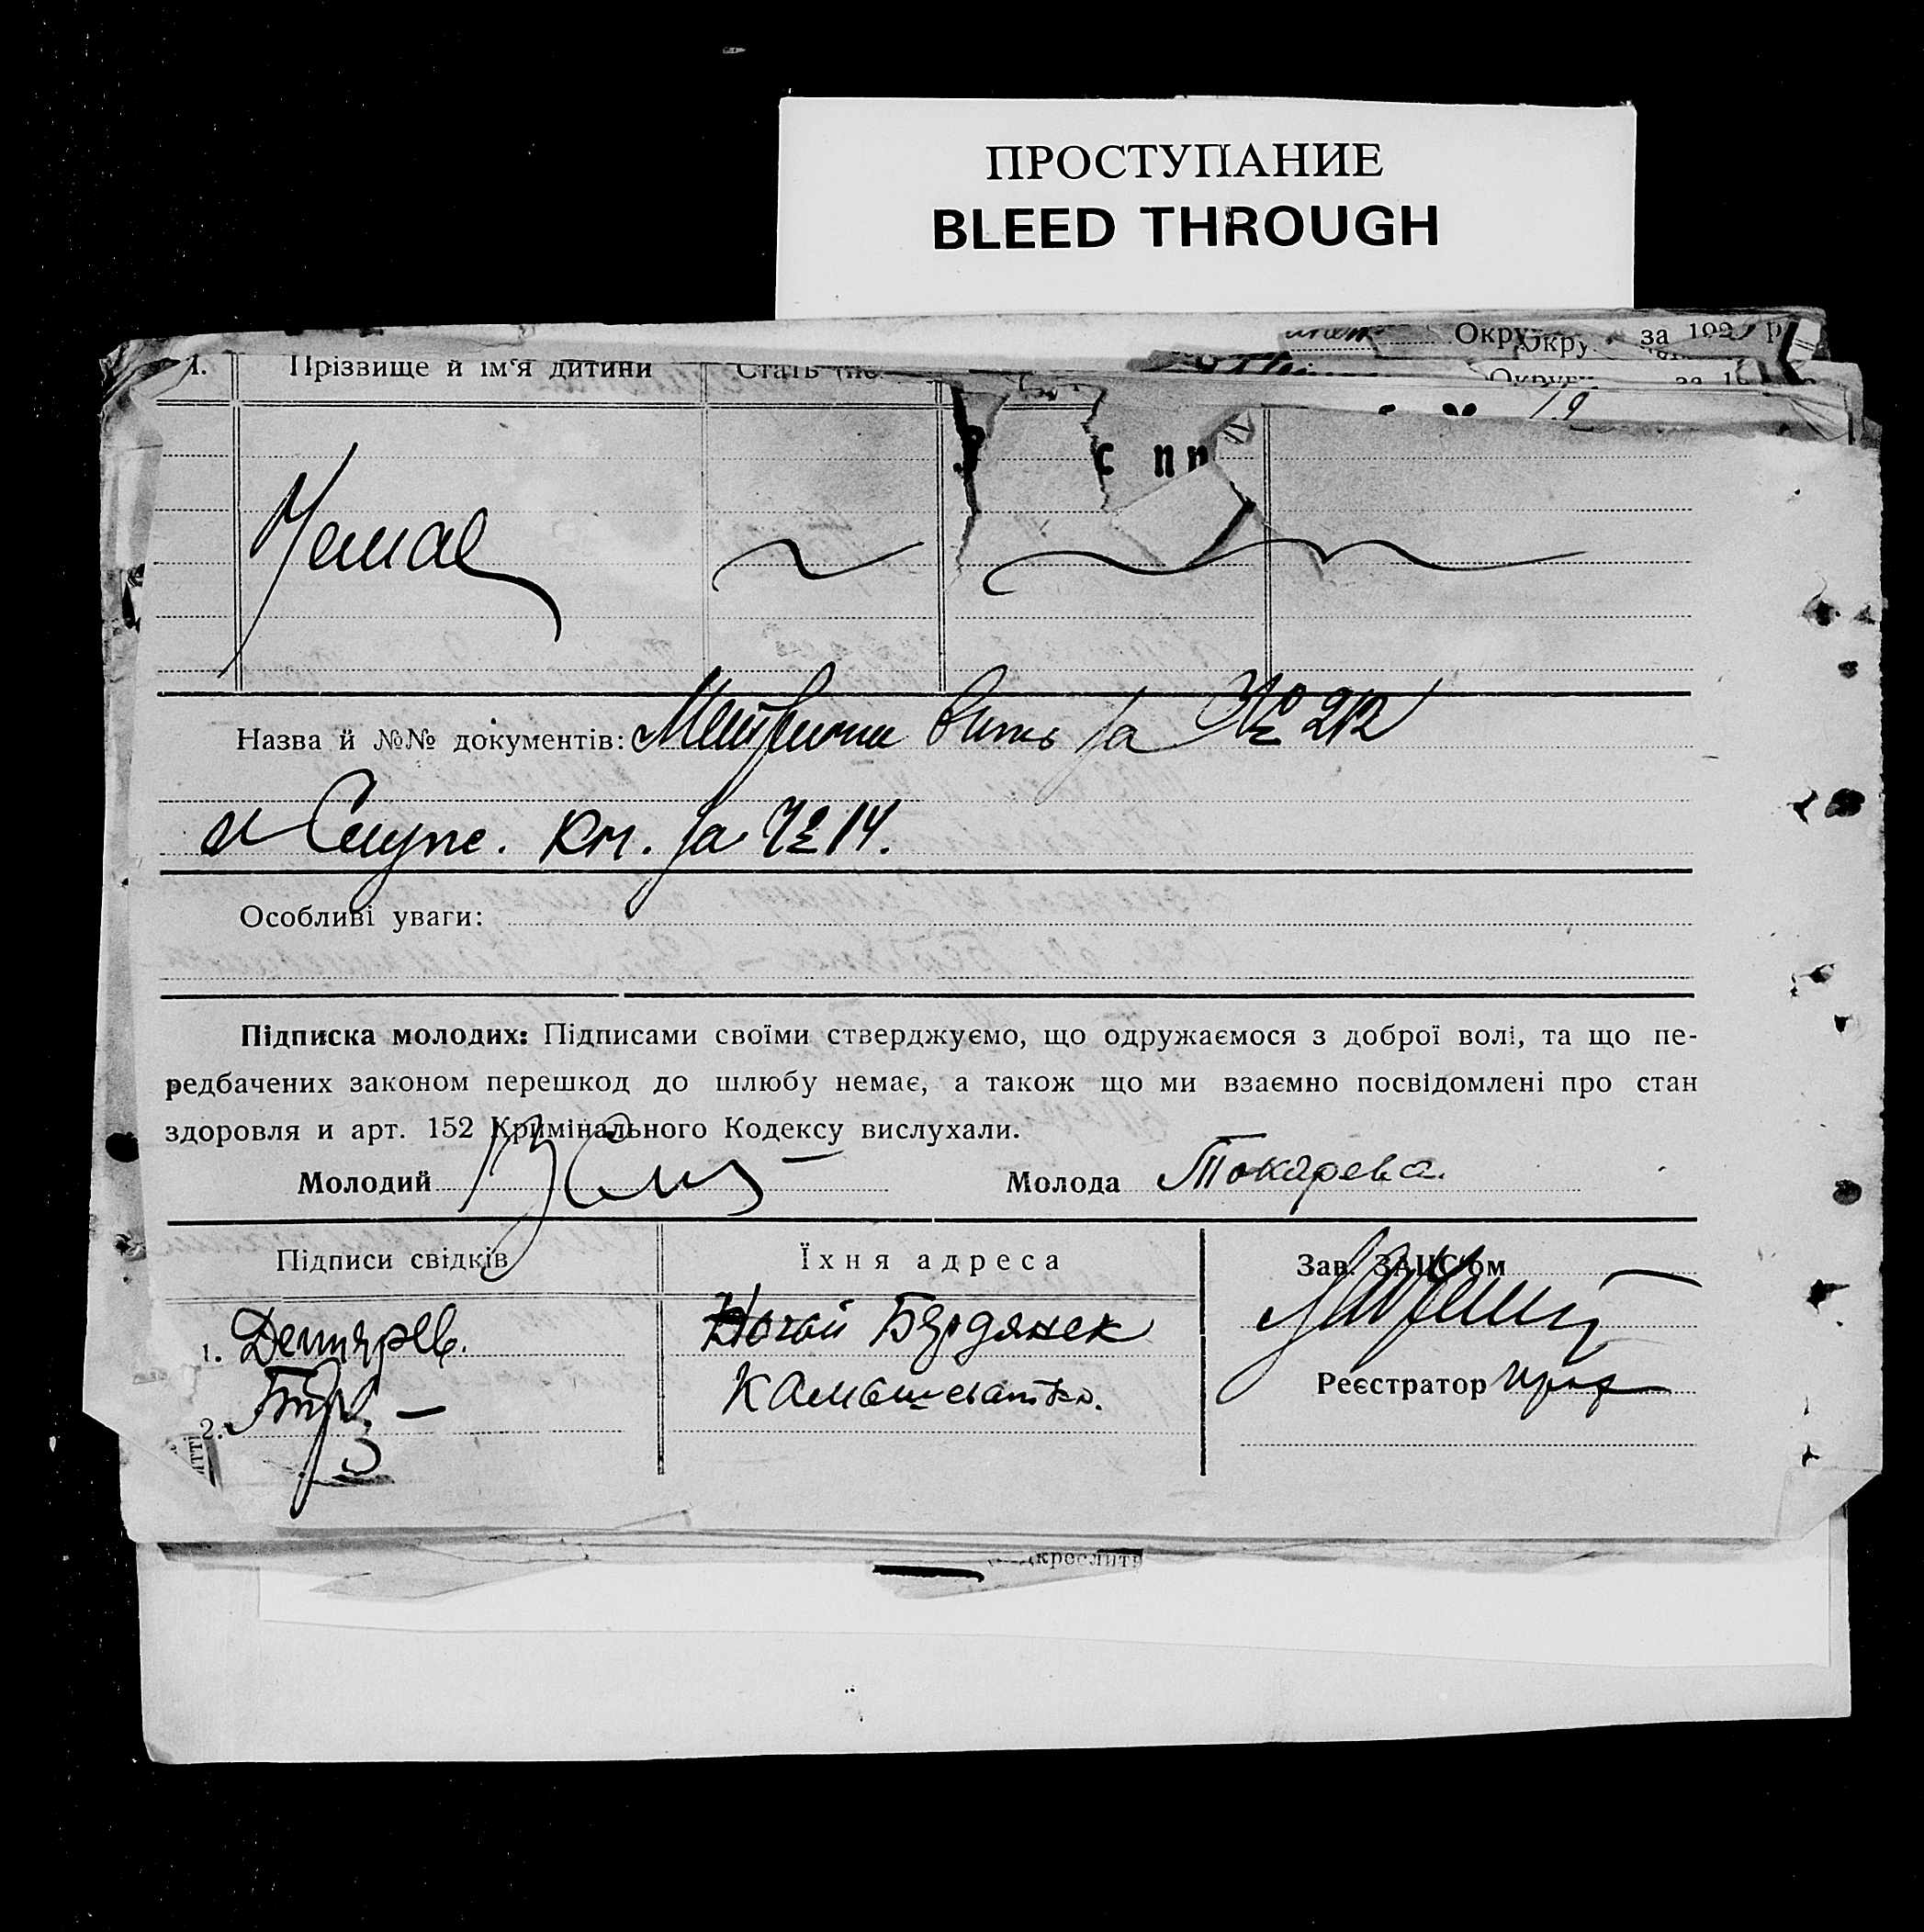 ПРОСТУПАНИЕ
BLEED THROUGH
Округ за 192 р
Окру
Округи за 19
Прізвище й ім'я дитини Стать
с пр
Немає
Назва й №№ документів: Метрична вип за № 212
и Служе. кн. за № 14.
Особливі уваги:
Підписка молодих: Підписами своїми стверджуємо, що одружаємося з доброї волі, та що пе-
редбачених законом перешкод до шлюбу немає, а також що ми взаємно посвідомлені про стан
здоровля и арт. 152 Кримінального Кодексу вислухали.
Молодий Молода Токарева.
Підписи свідків Їхня адреса Зав. ЗАЦС'ом
1. Дегтярев. Ногай Бярдянск
2. Камышеватка.
Реєстратор